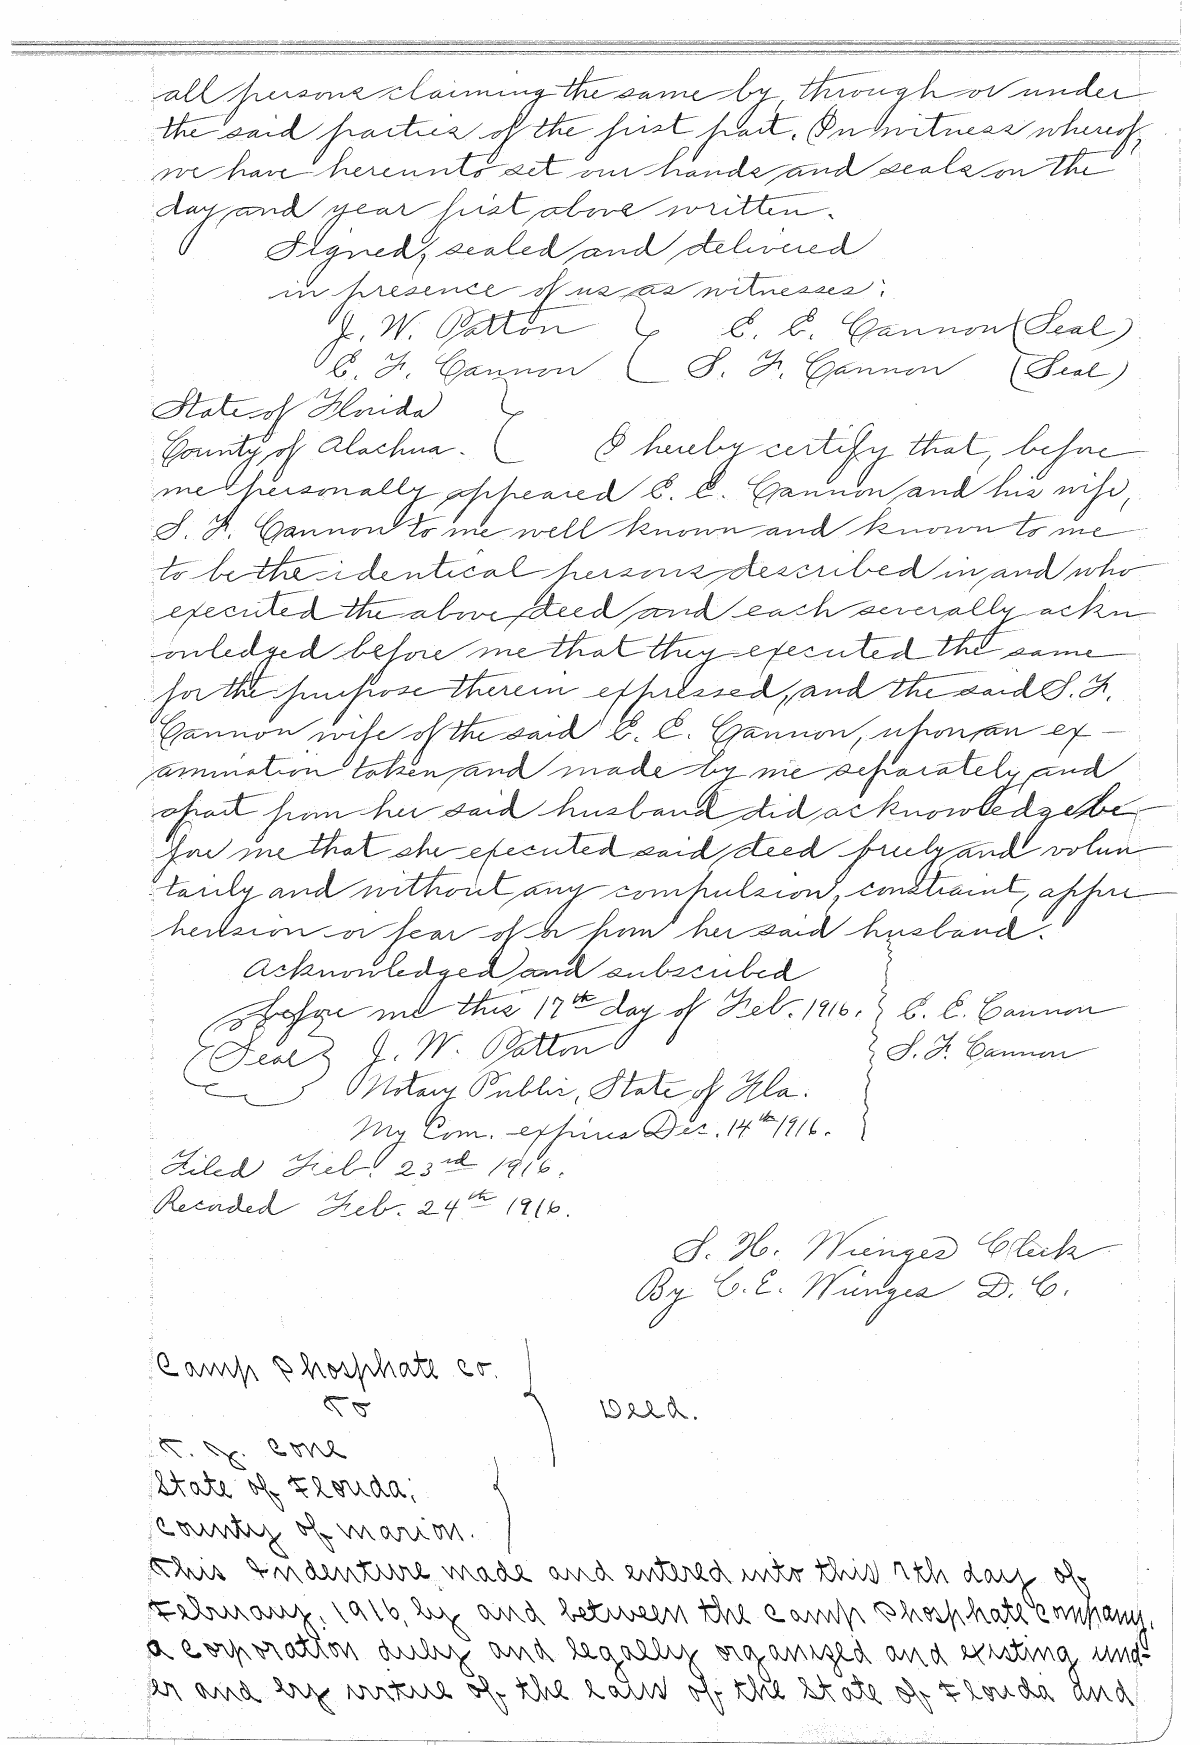 all persons claiming the same by, through or under
the said parties of the first part. In witness whereof,
we have hereunto set our hands and seals on the
day and year first above written.
Signed, sealed and delivered
in presence of us as witnesses:
J. W. Patton } E. E. Cannon (Seal)
E. F. Cannon { S. F. Cannon (Seal)
State of Florida }
County of Alachua. { I hereby certify that, before
me personally appeared E. E. Cannon and his wife,
S. F. Cannon to me well known and known to me
to be the identical persons described in and who
executed the above deed and each severally ackn
owledged before me that they executed the same
for the purpose therein expressed, and the said S. F.
Cannon wife of the said E. E. Cannon, upon an ex-
amination taken and made by me separately and
apart from her said husband did acknowledge be
fore me that she executed said deed freely and volun
tarily and without any compulsion, constraint, appre
hension or fear of or from her said husband.
Acknowledged and subscribed
before me this 17th day of Feb. 1916. E. E. Cannon
(Seal) J. W. Patton S. F. Cannon
Notary Public, State of Fla.
My Com. expires Dec. 14th 1916.
Filed Feb. 23rd 1916.
Recorded Feb. 24th 1916.
S. H. Wienges Clerk
By C. E. Wienges D. C.
Camp Phosphate Co.
To Deed.
T. J. Cone
State of Florida;
County of Marion.
This Indenture made and entered into this 7th day of
February, 1916, by and between the Camp Phosphate Company,
a corporation duly and legally organized and existing und-
er and by virtue of the laws of the State of Florida and